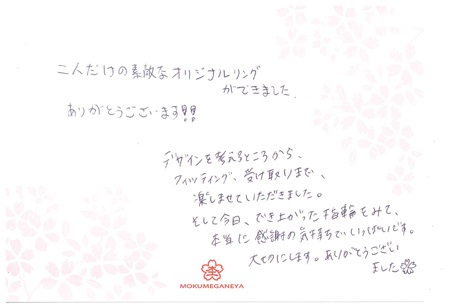 二人だけの素敵なオリジナルリング
ができました
ありがとうございます!!
デザインを考えるところから、
フィッティング、受け取りまで、
楽しませていただきました。
そして今日、でき上がった指輪をみて、
本当に感謝の気持ちでいっぱいです。
大切にします。ありがとうござい
ました
MOKUMEGANEYA